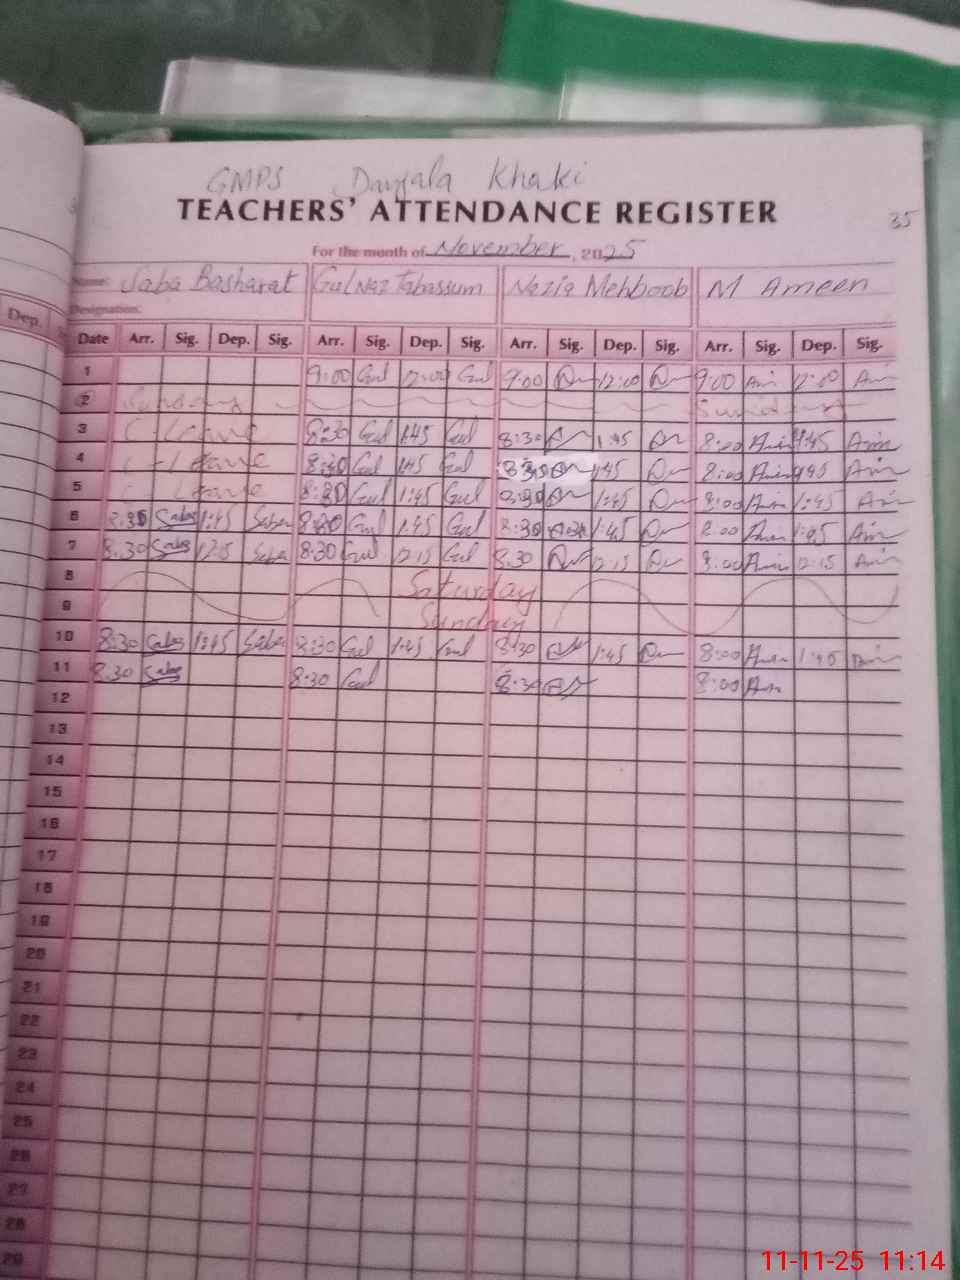 GMPS Danjala Khaki
TEACHERS' ATTENDANCE REGISTER
35
For the month of November, 2025
Name: Saba Basharat Gul Naz Tabassum Nazia Mehboob M Ameen
Designation:
Dep.
Date Arr. Sig. Dep. Sig. Arr. Sig. Dep. Sig. Arr. Sig. Dep. Sig. Arr. Sig. Dep. Sig.
1 9:00 Gul 12:00 Gul 9:00 12:00 9:00 Am 12:00 Am
2 Sunday Sunday
3 C-Leave 8:30 Gul 1:45 Gul 8:30 1:45 8:00 Amin 1:45 Amin
4 C-Leave 8:30 Gul 1:45 Gul 8:30 1:45 8:00 Amin 1:45 Amin
5 C Leave 8:30 Gul 1:45 Gul 8:30 1:45 8:00 Amin 1:45 Am
6 8:30 Saba 1:45 Saba 8:30 Gul 1:45 Gul 8:30 1:45 8:00 Amin 1:45 Amin
7 8:30 Saba 12:15 Saba 8:30 Gul 12:15 Gul 8:30 12:15 8:00 Amin 12:15 Am
8 Saturday
9 Sunday
10 8:30 Saba 1:45 Saba 8:30 Gul 1:45 Gul 8:30 1:45 8:00 Amin 1:45 Amin
11 8:30 Saba 8:30 Gul 8:30 8:00 Am
12
13
14
15
16
17
18
19
20
21
22
23
24
25
26
27
28
29
11-11-25 11:14